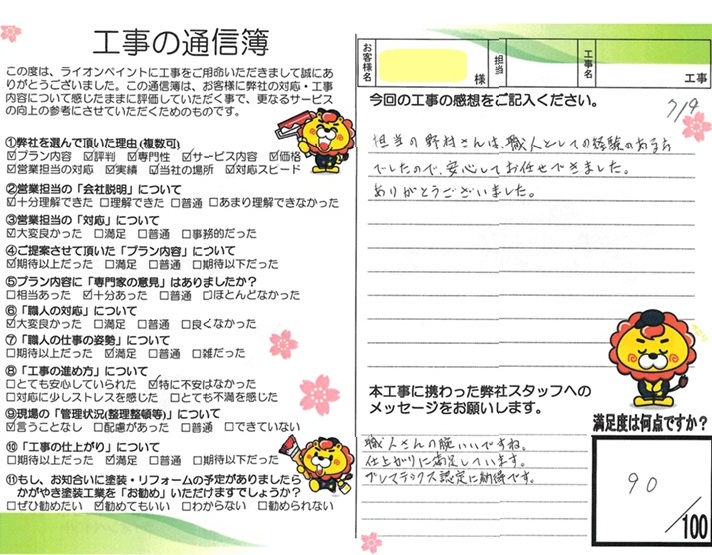 工事の通信簿
この度は、ライオンペイントに工事をご用命いただきまして誠にあ
りがとうございました。この通信簿は、お客様に弊社の対応・工事
内容について感じたままに評価していただく事で、更なるサービス
の向上の参考にさせていただくためのものです。
①弊社を選んで頂いた理由(複数可)
☑プラン内容 ☑評判 ☑専門性 ☑サービス内容 ☑価格
☑営業担当の対応 ☑実績 ☑当社の場所 ☑対応スピード
②営業担当の「会社説明」について
☑十分理解できた □理解できた □普通 □あまり理解できなかった
③営業担当の「対応」について
☑大変良かった □満足 □普通 □事務的だった
④ご提案させて頂いた「プラン内容」について
☑期待以上だった □満足 □普通 □期待以下だった
⑤プラン内容に「専門家の意見」はありましたか?
□相当あった ☑十分あった □普通 □ほとんどなかった
⑥「職人の対応」について
☑大変良かった □満足 □普通 □良くなかった
⑦「職人の仕事の姿勢」について
□期待以上だった ☑満足 □普通 □雑だった
⑧「工事の進め方」について
□とても安心していられた ☑特に不安はなかった
□対応に少しストレスを感じた □とても不満を感じた
⑨現場の「管理状況(整理整頓等)」について
☑言うことなし □配慮があった □普通 □できていない
⑩「工事の仕上がり」について
□期待以上だった ☑満足 □普通 □期待以下だった
⑪もし、お知合いに塗装・リフォームの予定がありましたら
かがやき塗装工業を「お勧め」いただけますでしょうか?
□ぜひ勧めたい ☑勧めてもいい □わからない □勧められない
お客様名 様 担当 工事名 工事
今回の工事の感想をご記入ください。
7/9
担当の野村さんは、職人としての経験のある方
でしたので、安心してお任せできました。
ありがとうございました。
本工事に携わった弊社スタッフへの
メッセージをお願いします。
職人さんの腕いいですね。
仕上がりに満足しています。
プレマテックス認定に納得です。
満足度は何点ですか?
90
/100